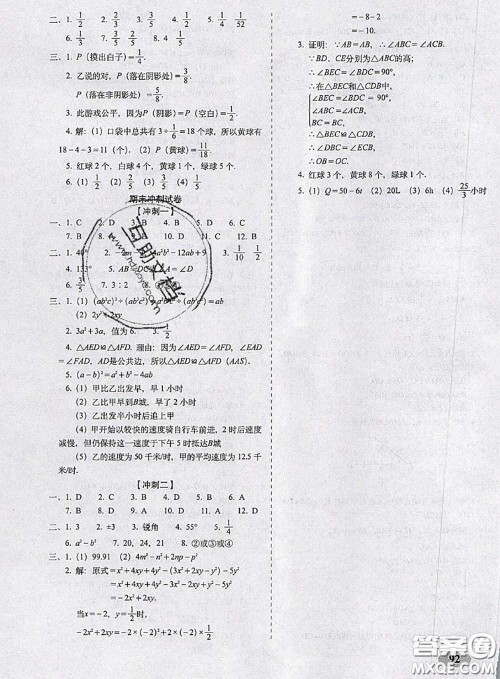 二、1. 1/2 2. 3/5 3. 1/2 4. 1/2 5. 1/2 6. 1/3
三、1. P(摸出白子)=1/4.
2. 乙说的对，P(落在阴影处)=3/8，
P(落在非阴影处)=5/8.
3. 此游戏公平，因为P(阴影)=P(空白)=1/4.
4. 解：(1) 口袋中总共有3÷1/6=18个球，所以黄球有
18-4-3=11(个). (2) P(黄球)=11/18.
5. 红球2个，白球4个，黄球1个，绿球5个.
6. (1) 1/2 (2) 2/5 (3) 4/5
期末冲刺试卷
【冲刺一】
7. B 8. A 9.
4. 133° 5. ∠A=∠D
7. 3∶2
(2) 2y²+2xy
3. 3a²+3a，值为6. 3. 1/2
4. △AED≌△AFD. 理由：因为∠AED=∠AFD，∠EAD
=∠FAD，AD是公共边，所以△AED≌△AFD (AAS).
5. (a-b)²=a²+b²-4ab
6. (1) 甲比乙出发早，早1小时
(2) 乙比甲早到B城，早2小时
(3) 乙出发半小时后追上甲
(4) 甲开始以较快的速度骑自行车前进，2小时后速度
减慢，但仍保持这一速度于下午5时抵达B城
(5) 乙的速度为50千米/时，甲的平均速度为12.5千
米/时.
【冲刺二】
一、1. D 2. C 3. B 4. D 5. B 6. A
7. B 8. D 9. D 10. D 11. D 12. A
二、1. 3 2. ±3 3. 锐角 4. 55° 5. 1/4
6. a²-b² 7. 20, 24, 21 8. ②或③或④
三、1. (1) 99.91 (2) 4m²-n²+2np-p²
2. 解：原式=x²+4xy+4y²-(3x²+2xy-y²)-5y²
=x²+4xy+4y²-3x²-2xy+y²-5y²
=-2x²+2xy.
当x=-2，y=1/2时，
-2x²+2xy=-2×(-2)²+2×(-2)×1/2
=-8-2
=-10.
3. 证明：∵AB=AC，∴∠ABC=∠ACB.
∵BD、CE分别为△ABC的高；
∴∠BEC=∠BDC=90°.
∴在△BEC和△BDC中
∠BEC=∠BDC=90°，
∠ABC=∠ACB，
BC=BC
∴△BEC≌△BDC，
∴∠DBC=∠ECB，
∴OB=OC.
4. 红球3个，黄球8个，绿球1个.
5. (1) Q=50-6t (2) 20L (3) 6h (4) 25/3小时
互助文档
答案圈
92